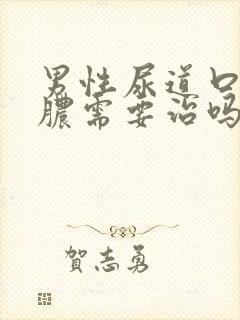 男性尿道口
膿需要治吗
賀志勇